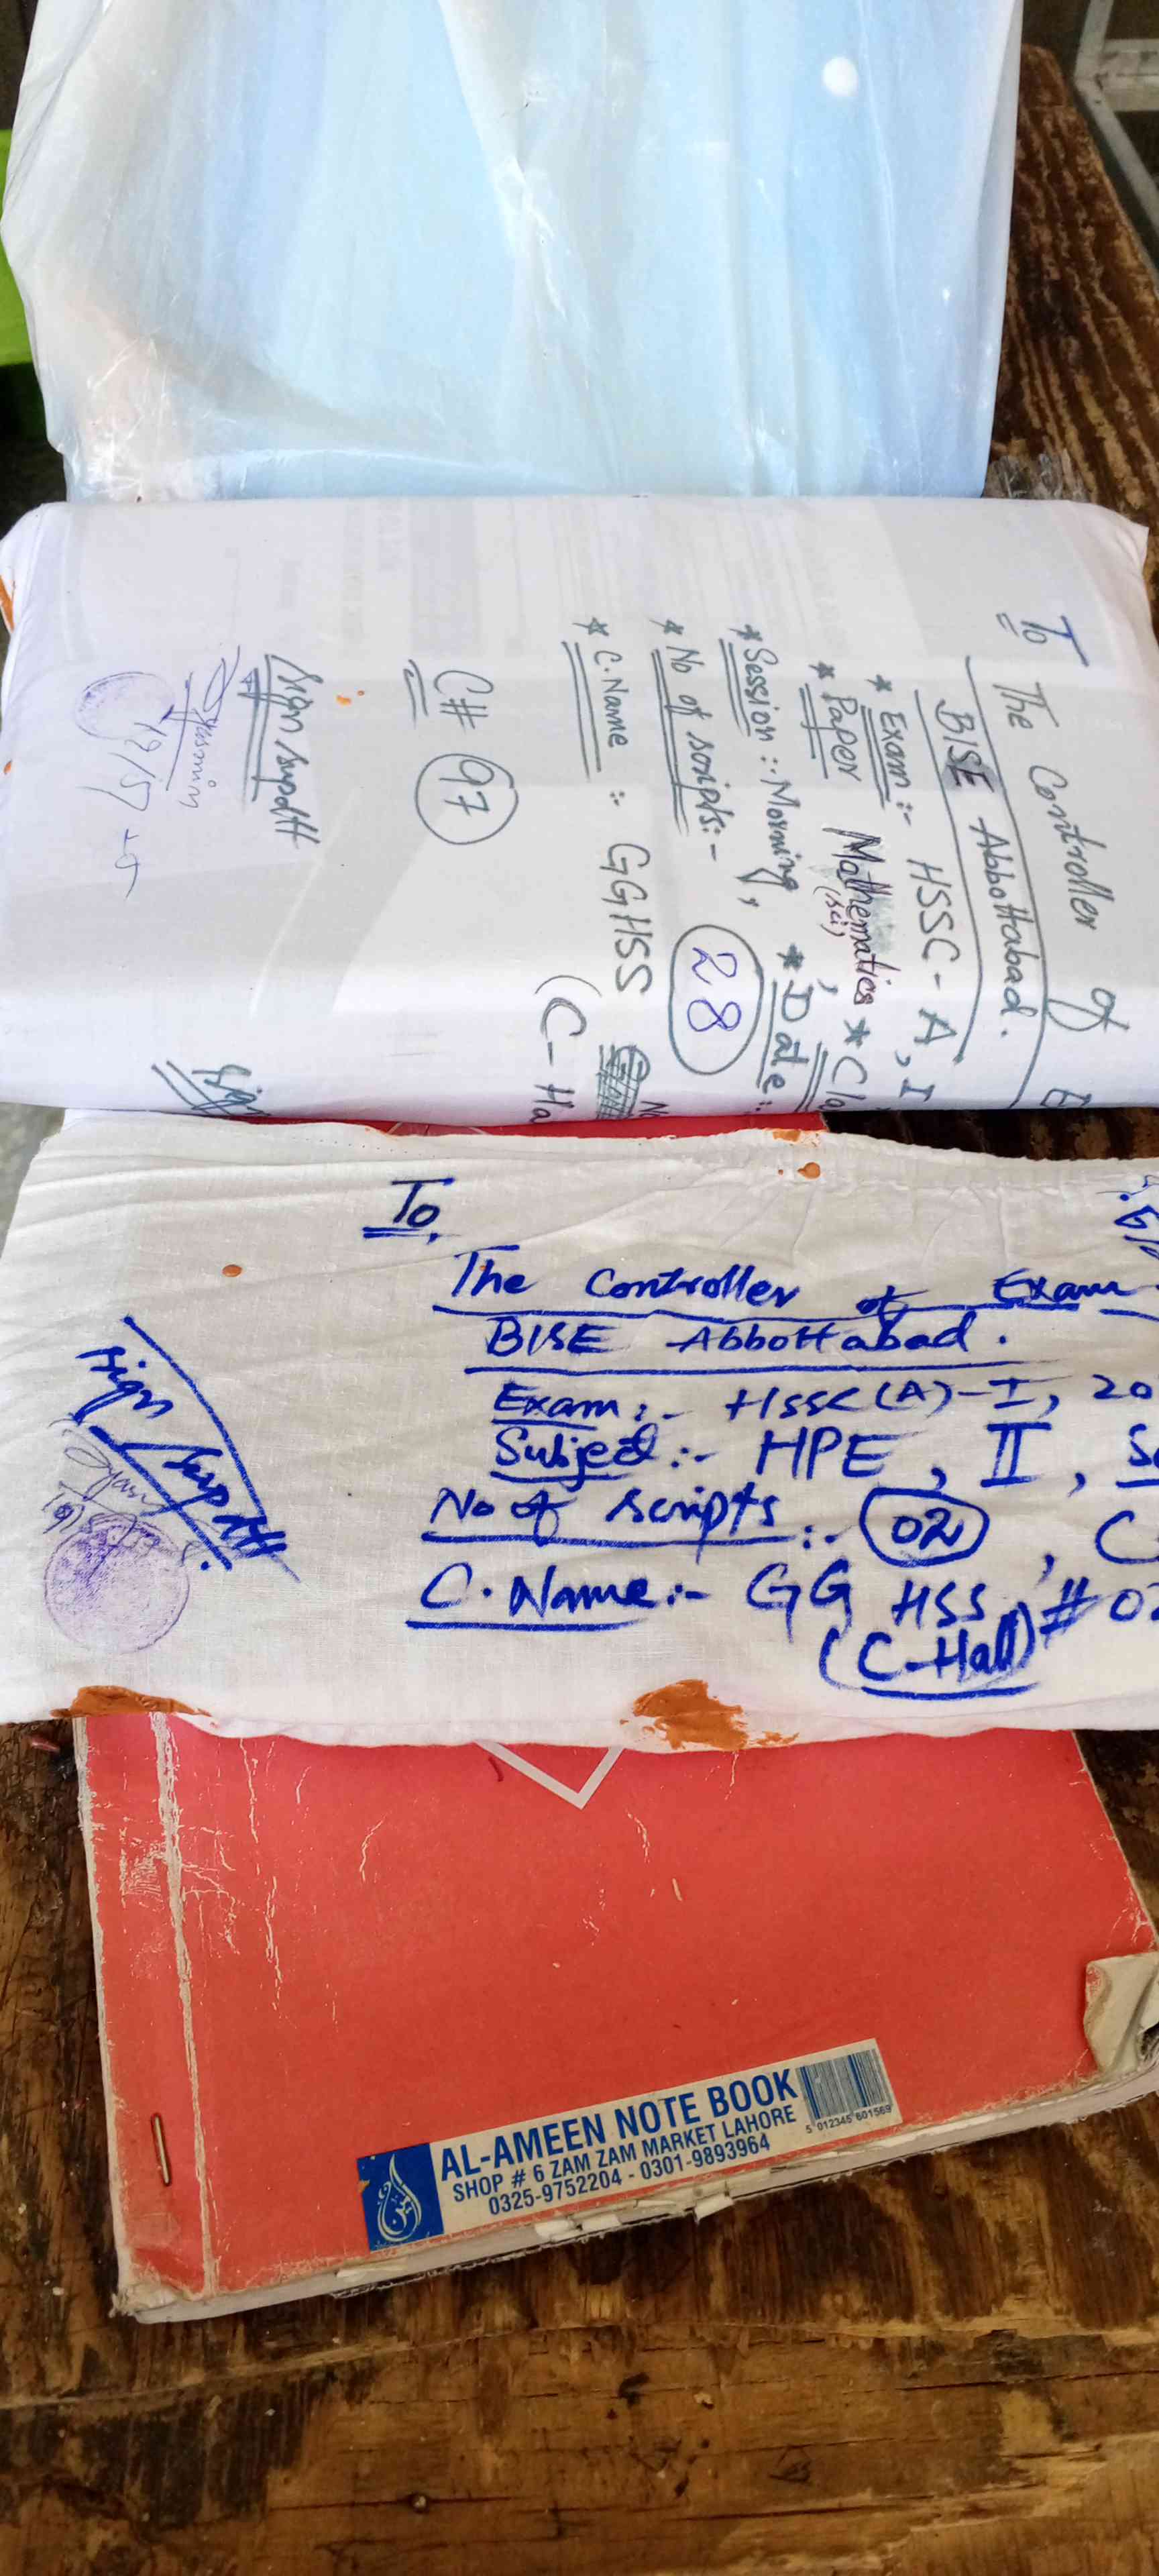 To The Controller of E
BISE Abbottabad.
* Exam :- HSSC-A, I
* Paper Mathematics * Cla
(sci)
* Session :- Morning, * Date :-
* No of scripts:- 28
* C.Name : GGHSS No
(C-Ha
C# 97
Sign Supdtt
19/5
To,
The Controller of Exam
BISE Abbottabad.
Exam :- HSSC(A)-I, 20
Subject :- HPE, II, Se
No of scripts :- 02, C
C.Name :- GG HSS, # 02
(C-Hall)
Sign/Supdtt
AL-AMEEN NOTE BOOK
SHOP # 6 ZAM ZAM MARKET LAHORE
0325-9752204 - 0301-9893964
5 012345 601569